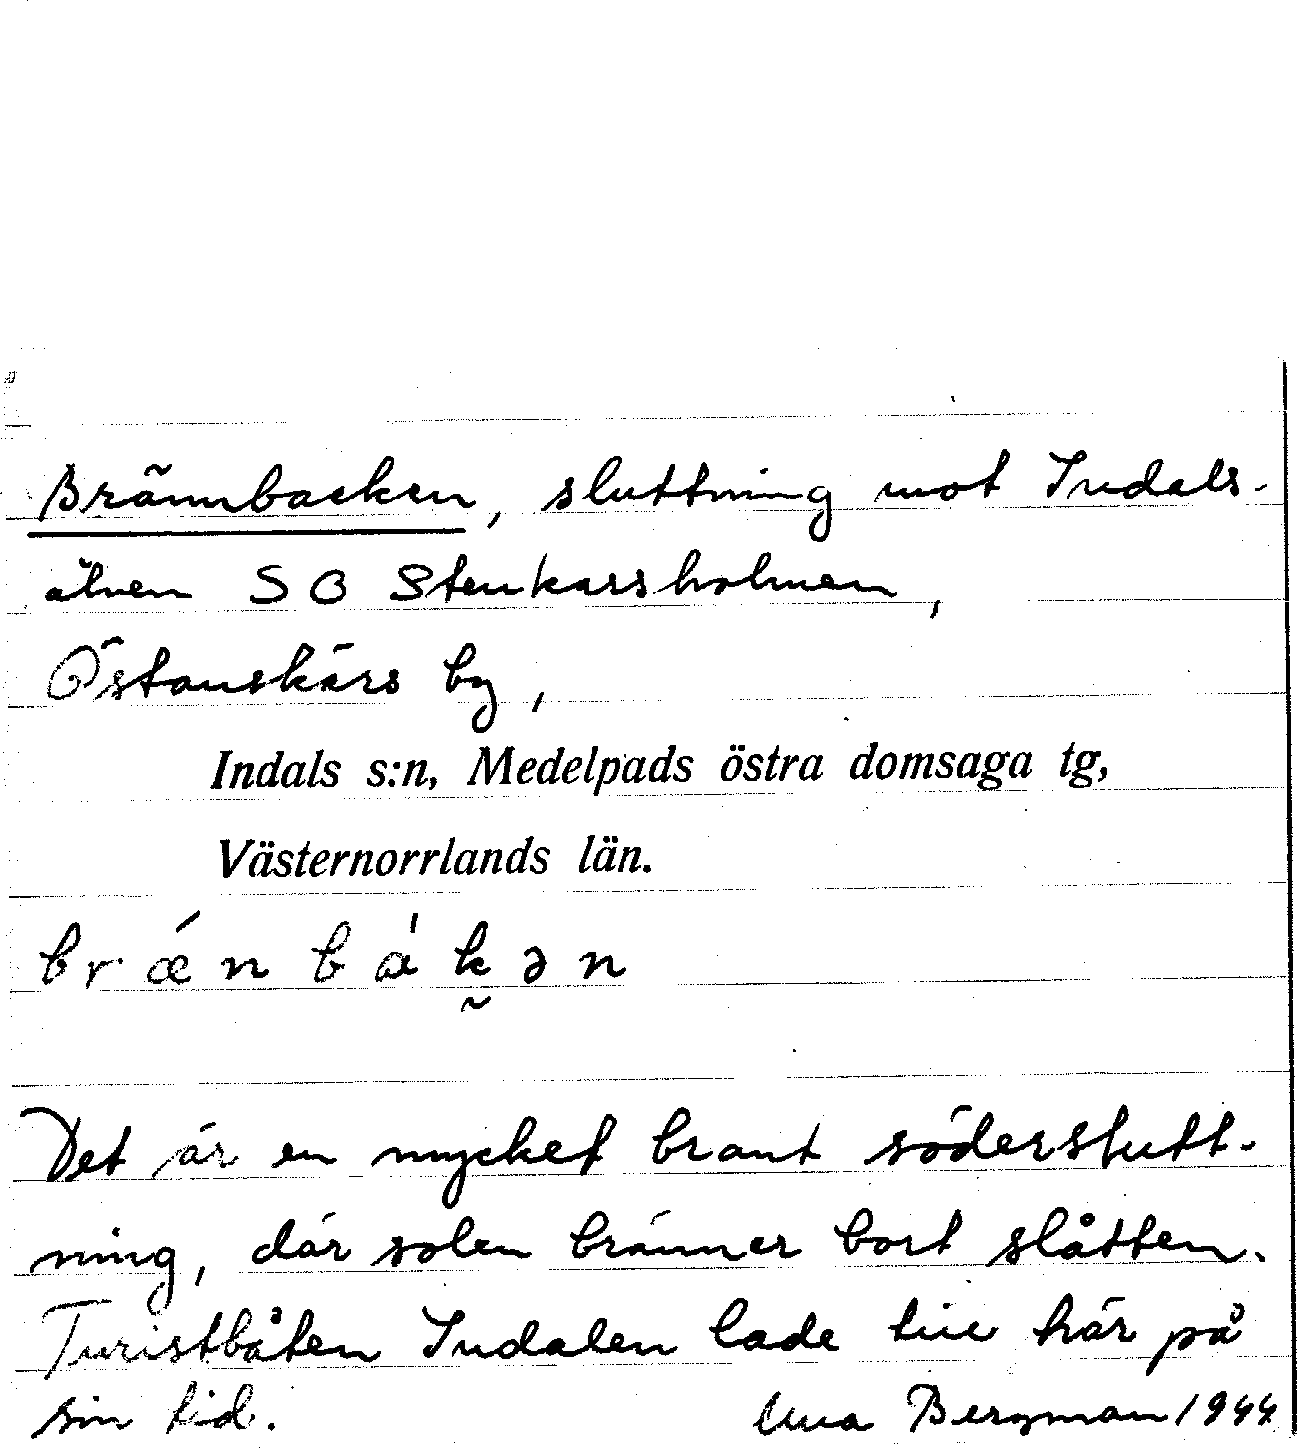 Brännbacken, sluttning mot Indals-
älven S O Stenkarsholmen,
Östanskärs by,
Indals s:n, Medelpads östra domsaga tg,
Västernorrlands län.
brǽnbȧkən
Det är en mycket brant södersluttt-
ning, där solen bränner bort slåtten.
Turistbåten Indalen lade till här på
sin tid. Bergman 1944